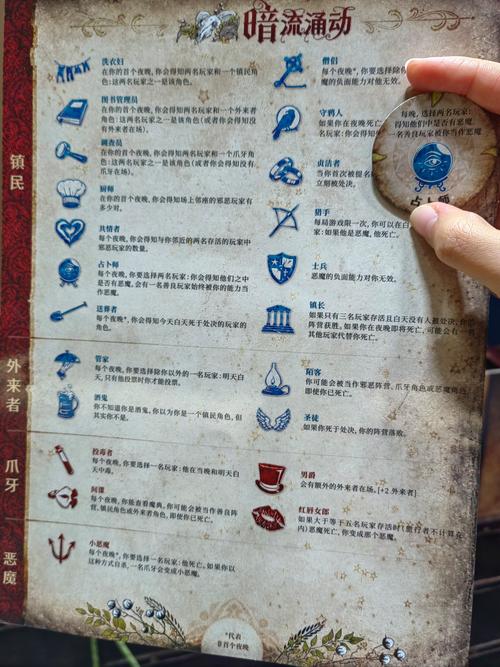 暗流涌动
镇民
洗衣妇
在你的首个夜晚，你会得知两名玩家和一个镇民角
色：这两名玩家之一是该角色。
图书管理员
在你的首个夜晚，你会得知两名玩家和一个外来者
角色：这两名玩家之一是该角色（或者你会得知没
有外来者在场）。
调查员
在你的首个夜晚，你会得知两名玩家和一个爪牙角
色：这两名玩家之一是该角色（或者你会得知没有
爪牙在场）。
厨师
在你的首个夜晚，你会得知场上邻座的邪恶玩家有
多少对。
共情者
每个夜晚，你会得知与你邻近的两名存活的玩家中
邪恶玩家的数量。
占卜师
每个夜晚，你要选择两名玩家：你会得知他们之中
是否有恶魔。会有一名善良玩家始终被你的能力当
作恶魔。
送葬者
每个夜晚*，你会得知今天白天死于处决的玩家的
角色。
僧侣
每个夜晚*，你要选择除你
魔的负面能力对你无效。
守鸦人
如果你在夜晚死亡
名玩家：你会得知
贞洁者
当你首次被提名
立刻被处决。
猎手
每局游戏限一次，你可以在白
家：如果他是恶魔，他死亡。
士兵
恶魔的负面能力对你无效。
镇长
如果只有三名玩家存活且白天没有人被处决，你的
阵营获胜。如果你在夜晚即将死亡，可能会有一名
其他玩家代替你死亡。
每晚，选择两名玩家：
得知他们中是否有恶魔。
一名善良玩家被你当作恶魔
占卜师
外来者
管家
每个夜晚，你要选择除你以外的一名玩家：明天白
天，只有他投票时你才能投票。
酒鬼
你不知道你是酒鬼。你以为你是一个镇民角色，但
其实你不是。
陌客
你可能会被当作邪恶阵营、爪牙角色或恶魔角色，
即使你已死亡。
圣徒
如果你死于处决，你的阵营落败。
爪牙
投毒者
每个夜晚，你要选择一名玩家：他在当晚和明天白
天中毒。
间谍
每个夜晚，你能查看魔典。你可能会被当作善良阵
营、镇民角色或外来者角色，即使你已死亡。
男爵
会有额外的外来者在场。[+2 外来者]
红唇女郎
如果大于等于五名玩家存活时（旅行者不计算在
内）恶魔死亡，你变成那个恶魔。
恶魔
小恶魔
每个夜晚*，你要选择一名玩家：他死亡。如果你以
这种方式自杀，一名爪牙会变成小恶魔。
*代表
非首个夜晚